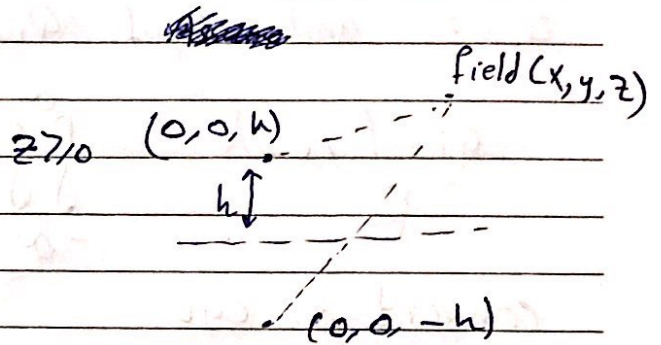 field (x, y, z)
z⩾0 (0, 0, h)
h
(0, 0, -h)